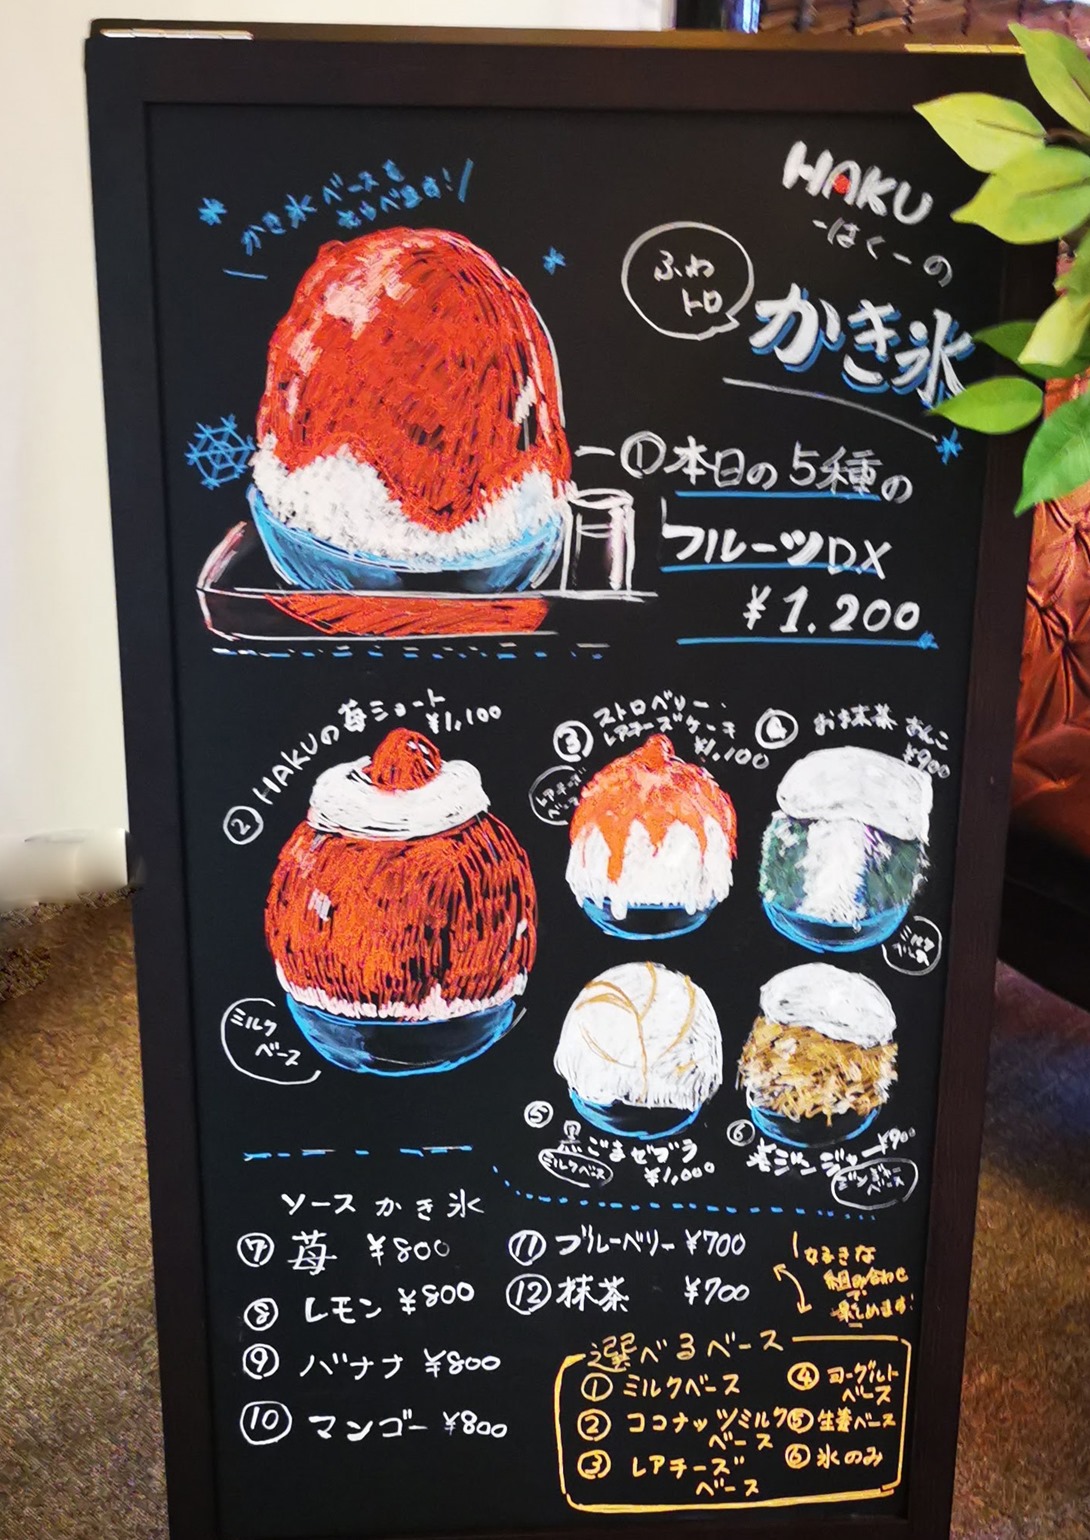 かき氷ベースも
えらべます!
HAKU
-はく-の
ふわ
トロ
かき氷
①本日の5種の
フルーツDX
¥1.200
②HAKUの苺ショート
¥1,100
ミルク
ベース
③ストロベリー
レアチーズケーキ
¥1,100
レアチーズ
ベース
④お抹茶あんこ
¥900
ミルク
⑤黒ごまゼブラ
ミルクベース
¥1,000
⑥ジンジャー ¥900
ジンジャー
ベース
ソースかき氷
⑦ 苺 ¥800
⑧ レモン ¥800
⑨ バナナ ¥800
⑩ マンゴー ¥800
⑪ ブルーベリー ¥700
⑫ 抹茶 ¥700
好きな
組み合わせ
で
楽しめます!
選べるベース
① ミルクベース
② ココナッツミルク
ベース
③ レアチーズ
ベース
④ ヨーグルト
ベース
⑤ 生姜ベース
⑥ 氷のみ